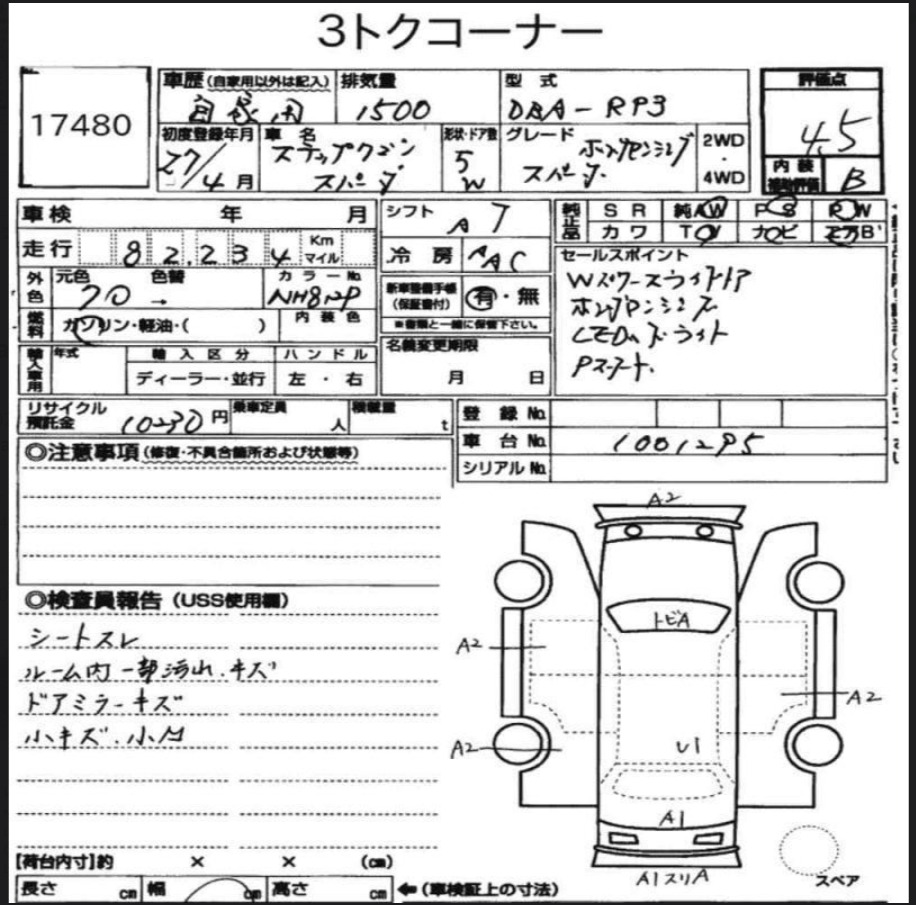 3トクコーナー
17480
車歴(自家用以外は記入) 排気量 型式 評価点
自家用 1500 DBA-RP3 4.5
初度登録年月 車名 形状・ドア数 グレード 2WD・4WD
27/4月 ステップワゴン スパーダ 5 W ホンダセンシング スパーダ 内装 補助評価 B
車検 年 月 シフト AT 純正品 SR 純AW PS PW
走行 82,234 Km マイル 冷房 AAC カワ TV ナビ エアB
外色 元色 色替 カラーNo. セールスポイント
NH812P 新車整備手帳(保証書付) 有・無 Wパワースライドドア
燃料 ガソリン・軽油・( ) 内装色 ※書類と一緒に保管下さい。 ホンダセンシング
輸入車用 年式 輸入区分 ハンドル 名義変更期限 LEDヘッドライト
ディーラー・並行 左・右 月 日 Pスタート.
リサイクル預託金 10230円 乗車定員 人 積載量 t 登録No.
車台No. 1001295
◎注意事項(修復・不具合箇所および状態等) シリアルNo.
A2
◎検査員報告(USS使用欄)
トビA
シートスレ
A2
ルーム内一部汚れ.キズ
A2
ドアミラーキズ
小キズ.小凹
A2 U1
A1
【荷台内寸】約 × × (cm)
A1スリA スペア
長さ cm 幅 cm 高さ cm ←(車検証上の寸法)